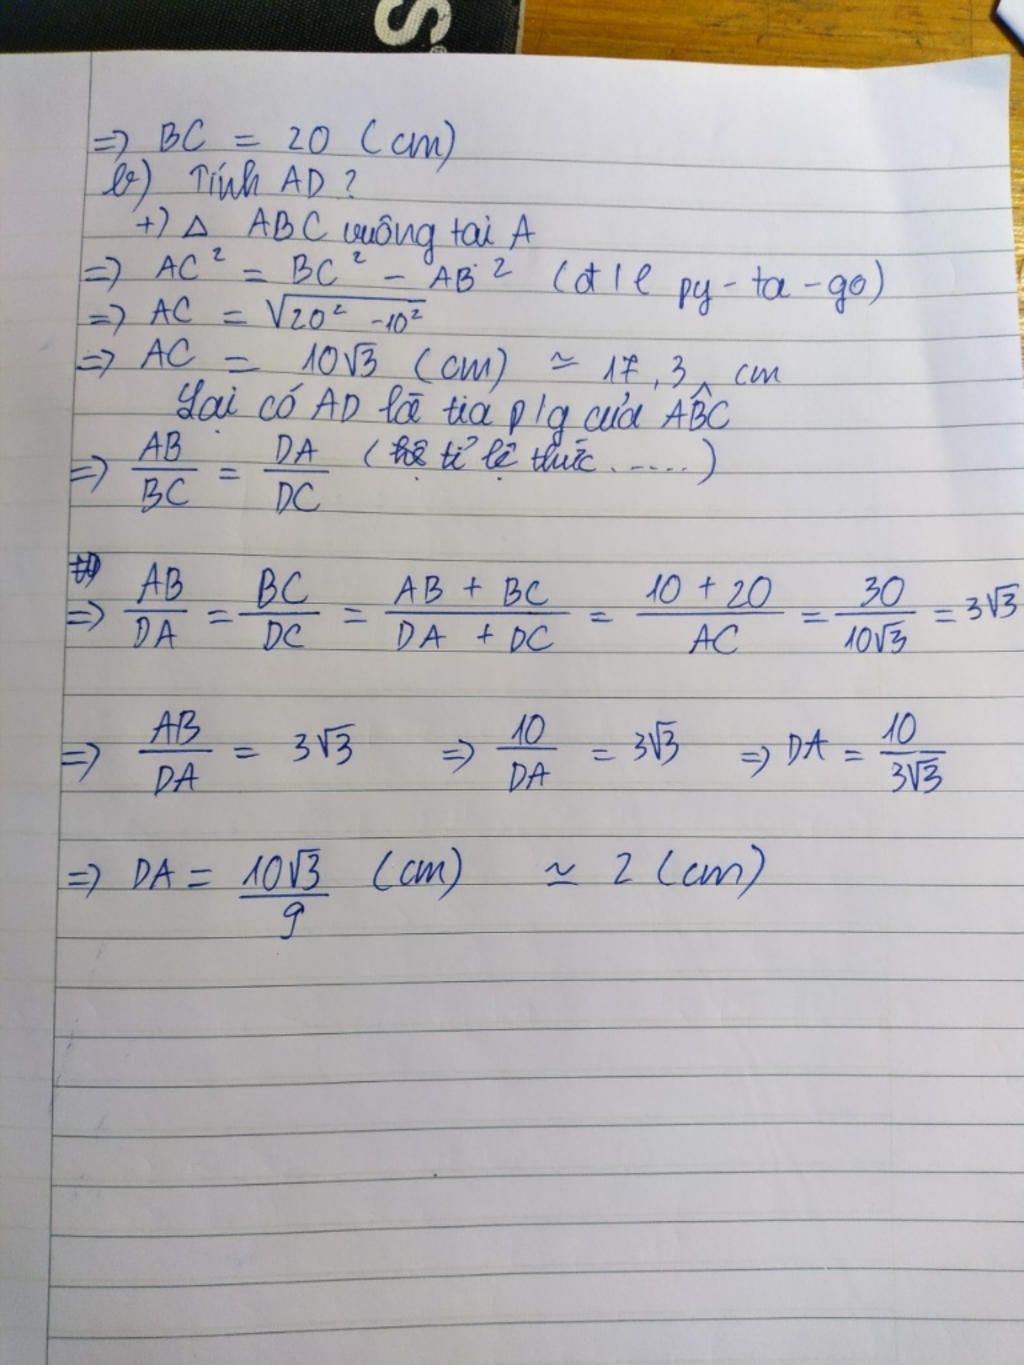 S
=> BC = 20 (cm)
b) Tính AD ?
+) △ ABC vuông tai A
=> AC² = BC² - AB² (đ/l py-ta-go)
=> AC = √20² -10²
=> AC = 10√3 (cm) ≃ 17,3 cm
Lại có AD là tia p/g của ABC
=> AB/BC = DA/DC (hệ tỉ lệ thức.....)
=> AB/DA = BC/DC = AB + BC/DA + DC = 10 + 20/AC = 30/10√3 = 3√3
=> AB/DA = 3√3 => 10/DA = 3√3 => DA = 10/3√3
=> DA = 10√3/9 (cm) ≃ 2 (cm)